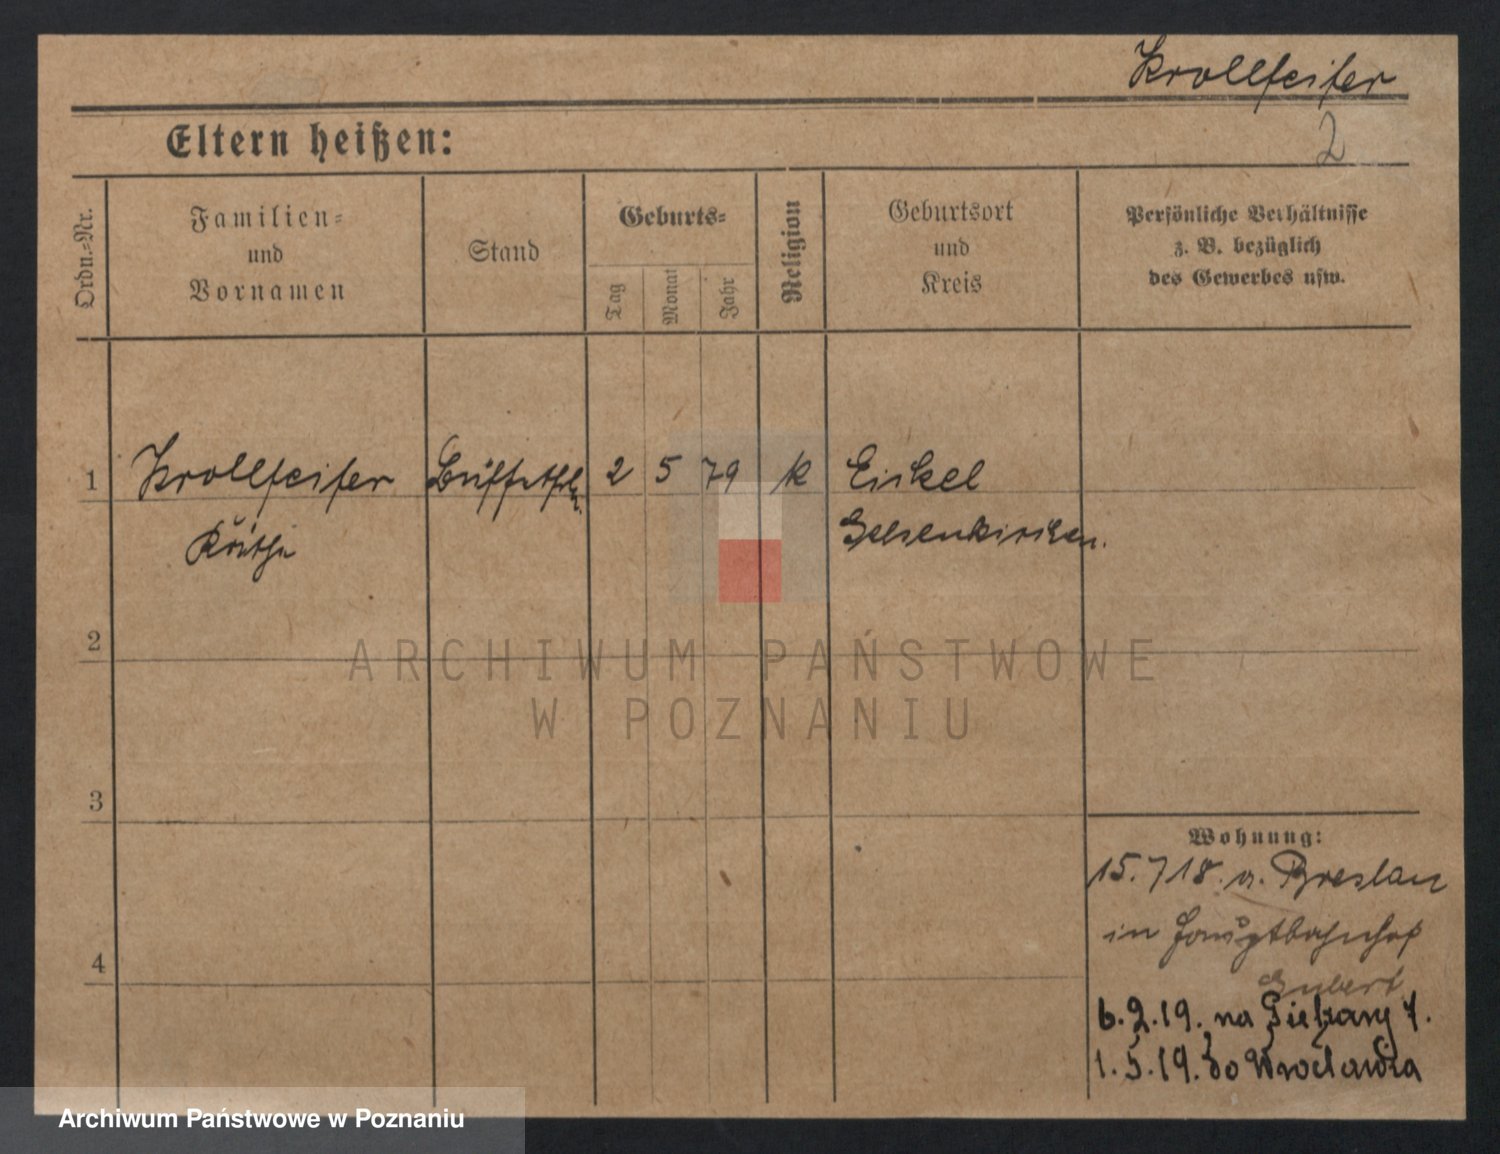 Krollfeifer
2
Eltern heißen:
Ordn.-Nr.
Familien-
und
Vornamen
Stand
Geburts-
Tag
Monat
Jahr
Religion
Geburtsort
und
Kreis
Persönliche Verhältnisse
z. B. bezüglich
des Gewerbes usw.
1 Krollfeifer 2 5 79 k Eickel
Käthe Gelsenkirchen.
2
ARCHIWUM PAŃSTWOWE
W POZNANIU
3
Wohnung:
15.718. v. Breslau
in Hauptbahnhof
4
6.2.19. na Piekary 7.
1.5.19. do Wrocławia
Archiwum Państwowe w Poznaniu